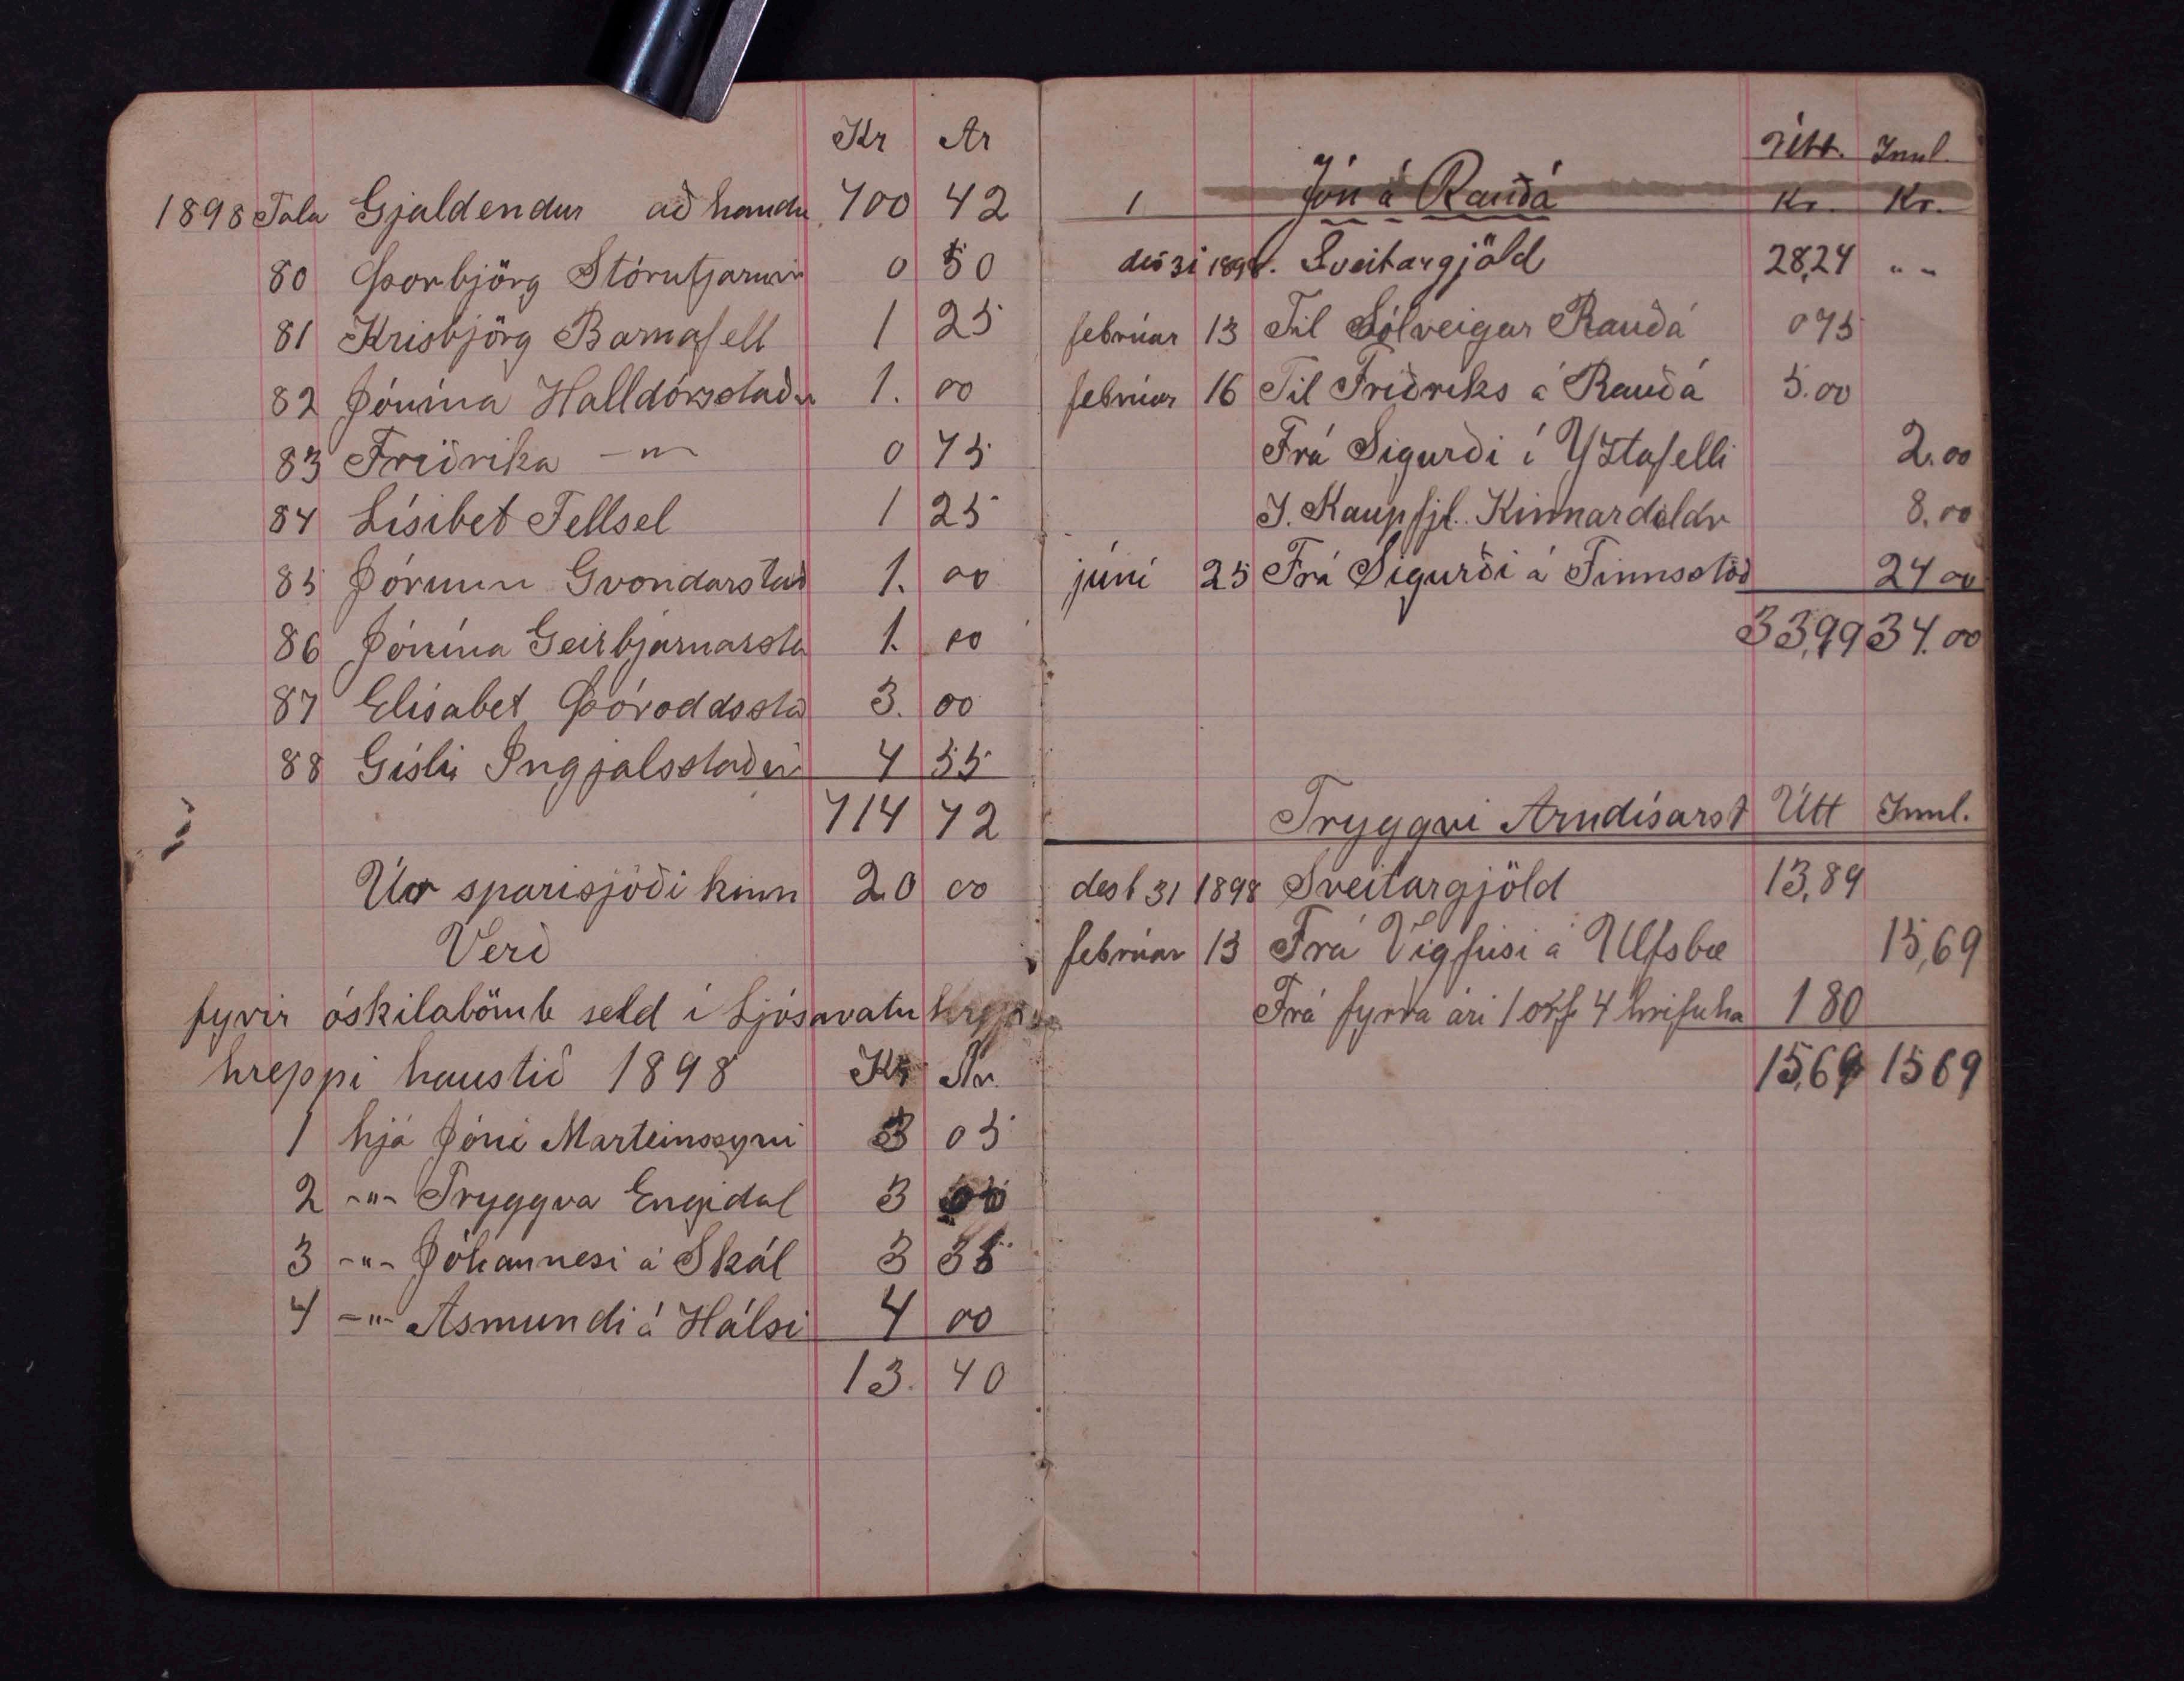 Kr Ar
1898 Tala Gjaldendur að handu 700 42
80 Þorbjörg Stórutjarnir 0 50
81 Krisbjörg Barnafell 1 25
82 Jónína Halldórsstaðu 1. 00
83 Friðrika -"- 0 75
84 Lísibet Fellsel 1 25
85 Jórunn Gvondarstað 1. 00
86 Jónína Geirbjarnarsta 1. 00
87 Elísabet Þóroddssta 3. 00
88 Gísli Ingjalsstaðir 4 55
714 72
Úr sparisjóði kinn 20 00
Verð
fyrir óskilalömb seld í Ljósavatn
hreppi haustið 1898 Kr Ar.
1 hjá Jóni Marteinssyni 3 05
2 -"- Tryggva Engidal 3 00
3 -"- Jóhannesi á Skál 3 35
4 -"- Asmundi á Hálsi 4 00
13. 40
Útt. Innl.
1 Jón á Rauðá Kr. Kr.
des 31 1898. Sveitargjöld 28,24 " "
febrúar 13 Til Sólveigar Rauðá 0 75
febrúar 16 Til Friðriks á Rauðá 5.00
Frá Sigurði í Ystafelli 2.00
J. Kaupfjl. Kinnardeildr 8.00
júní 25 Frá Sigurði á Finnsstöð 24 00
33,99 34.00
Tryggvi Arndísarst Útt Innl.
des b 31 1898 Sveitargjöld 13,89
febrúar 13 Frá Vigfúsi á Ulfsbæ 15,69
Frá fyrra ári 1 orf 4 hrífuha 1 80
15,69 15 69